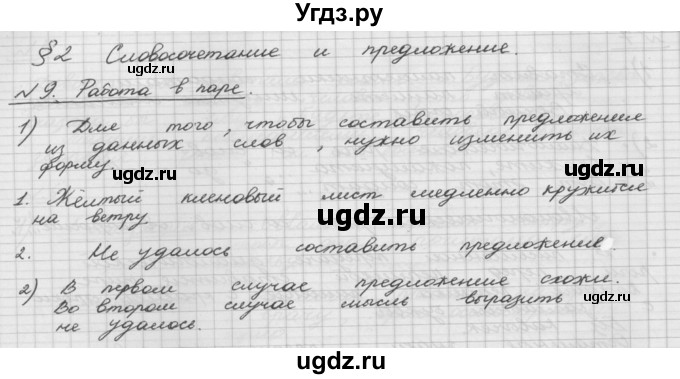 Угдз.ру
§2 Словосочетание и предложение.
ugdz.ru ugdz.ru
№9. Работа в паре.
ugdz.ru
1) Для того, чтобы составить предложение
из данных слов, нужно изменить их
форму
ugdz.ru ugdz.ru
1. Жёлтый кленовый лист медленно кружится
на ветру
ugdz.ru
2. Не удалось составить предложение.
ugdz.ru
2) В первом случае предложение схожи.
ugdz.ru
Во втором случае мысль выразить
не удалось.
ugdz.ru
ugdz.ru